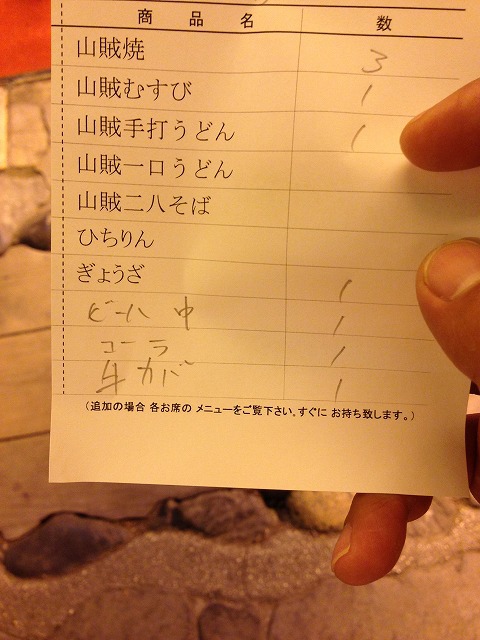 商品名 数
山賊焼 3
山賊むすび 1
山賊手打うどん 1
山賊一口うどん
山賊二八そば
ひちりん
ぎょうざ 1
ビール 中 1
コーラ 1
牛カバ 1
(追加の場合 各お席の メニューをご覧下さい。すぐに お持ち致します。)